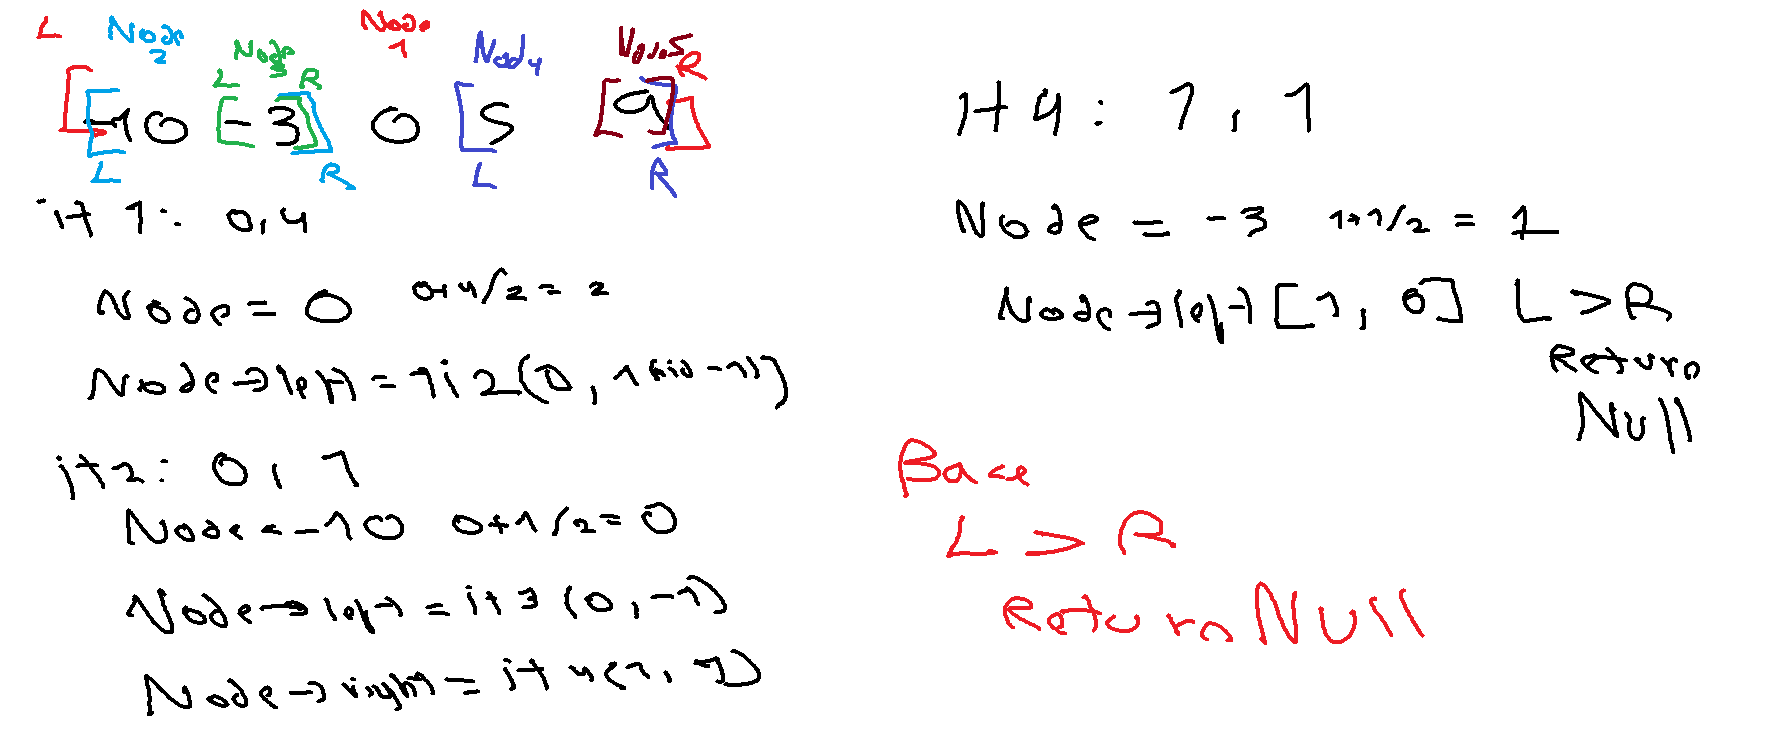 L Node 2 Node 3 Node 1 Nod4 Node5 R
L R
[[-10 [-3]] 0 [5 [9]]]
L R L R
it 1: 0,4
Node = 0 0+4/2 = 2
Node→left = 1i2(0, 1(mid-1))
it2: 0, 1
Node = -10 0+1/2 = 0
Node→left = it3(0,-1)
Node→right = it4(1, 1)
it4: 1, 1
Node = -3 1+1/2 = 1
Node→left [1, 0] L>R
Return
Null
Base
L > R
Return Null